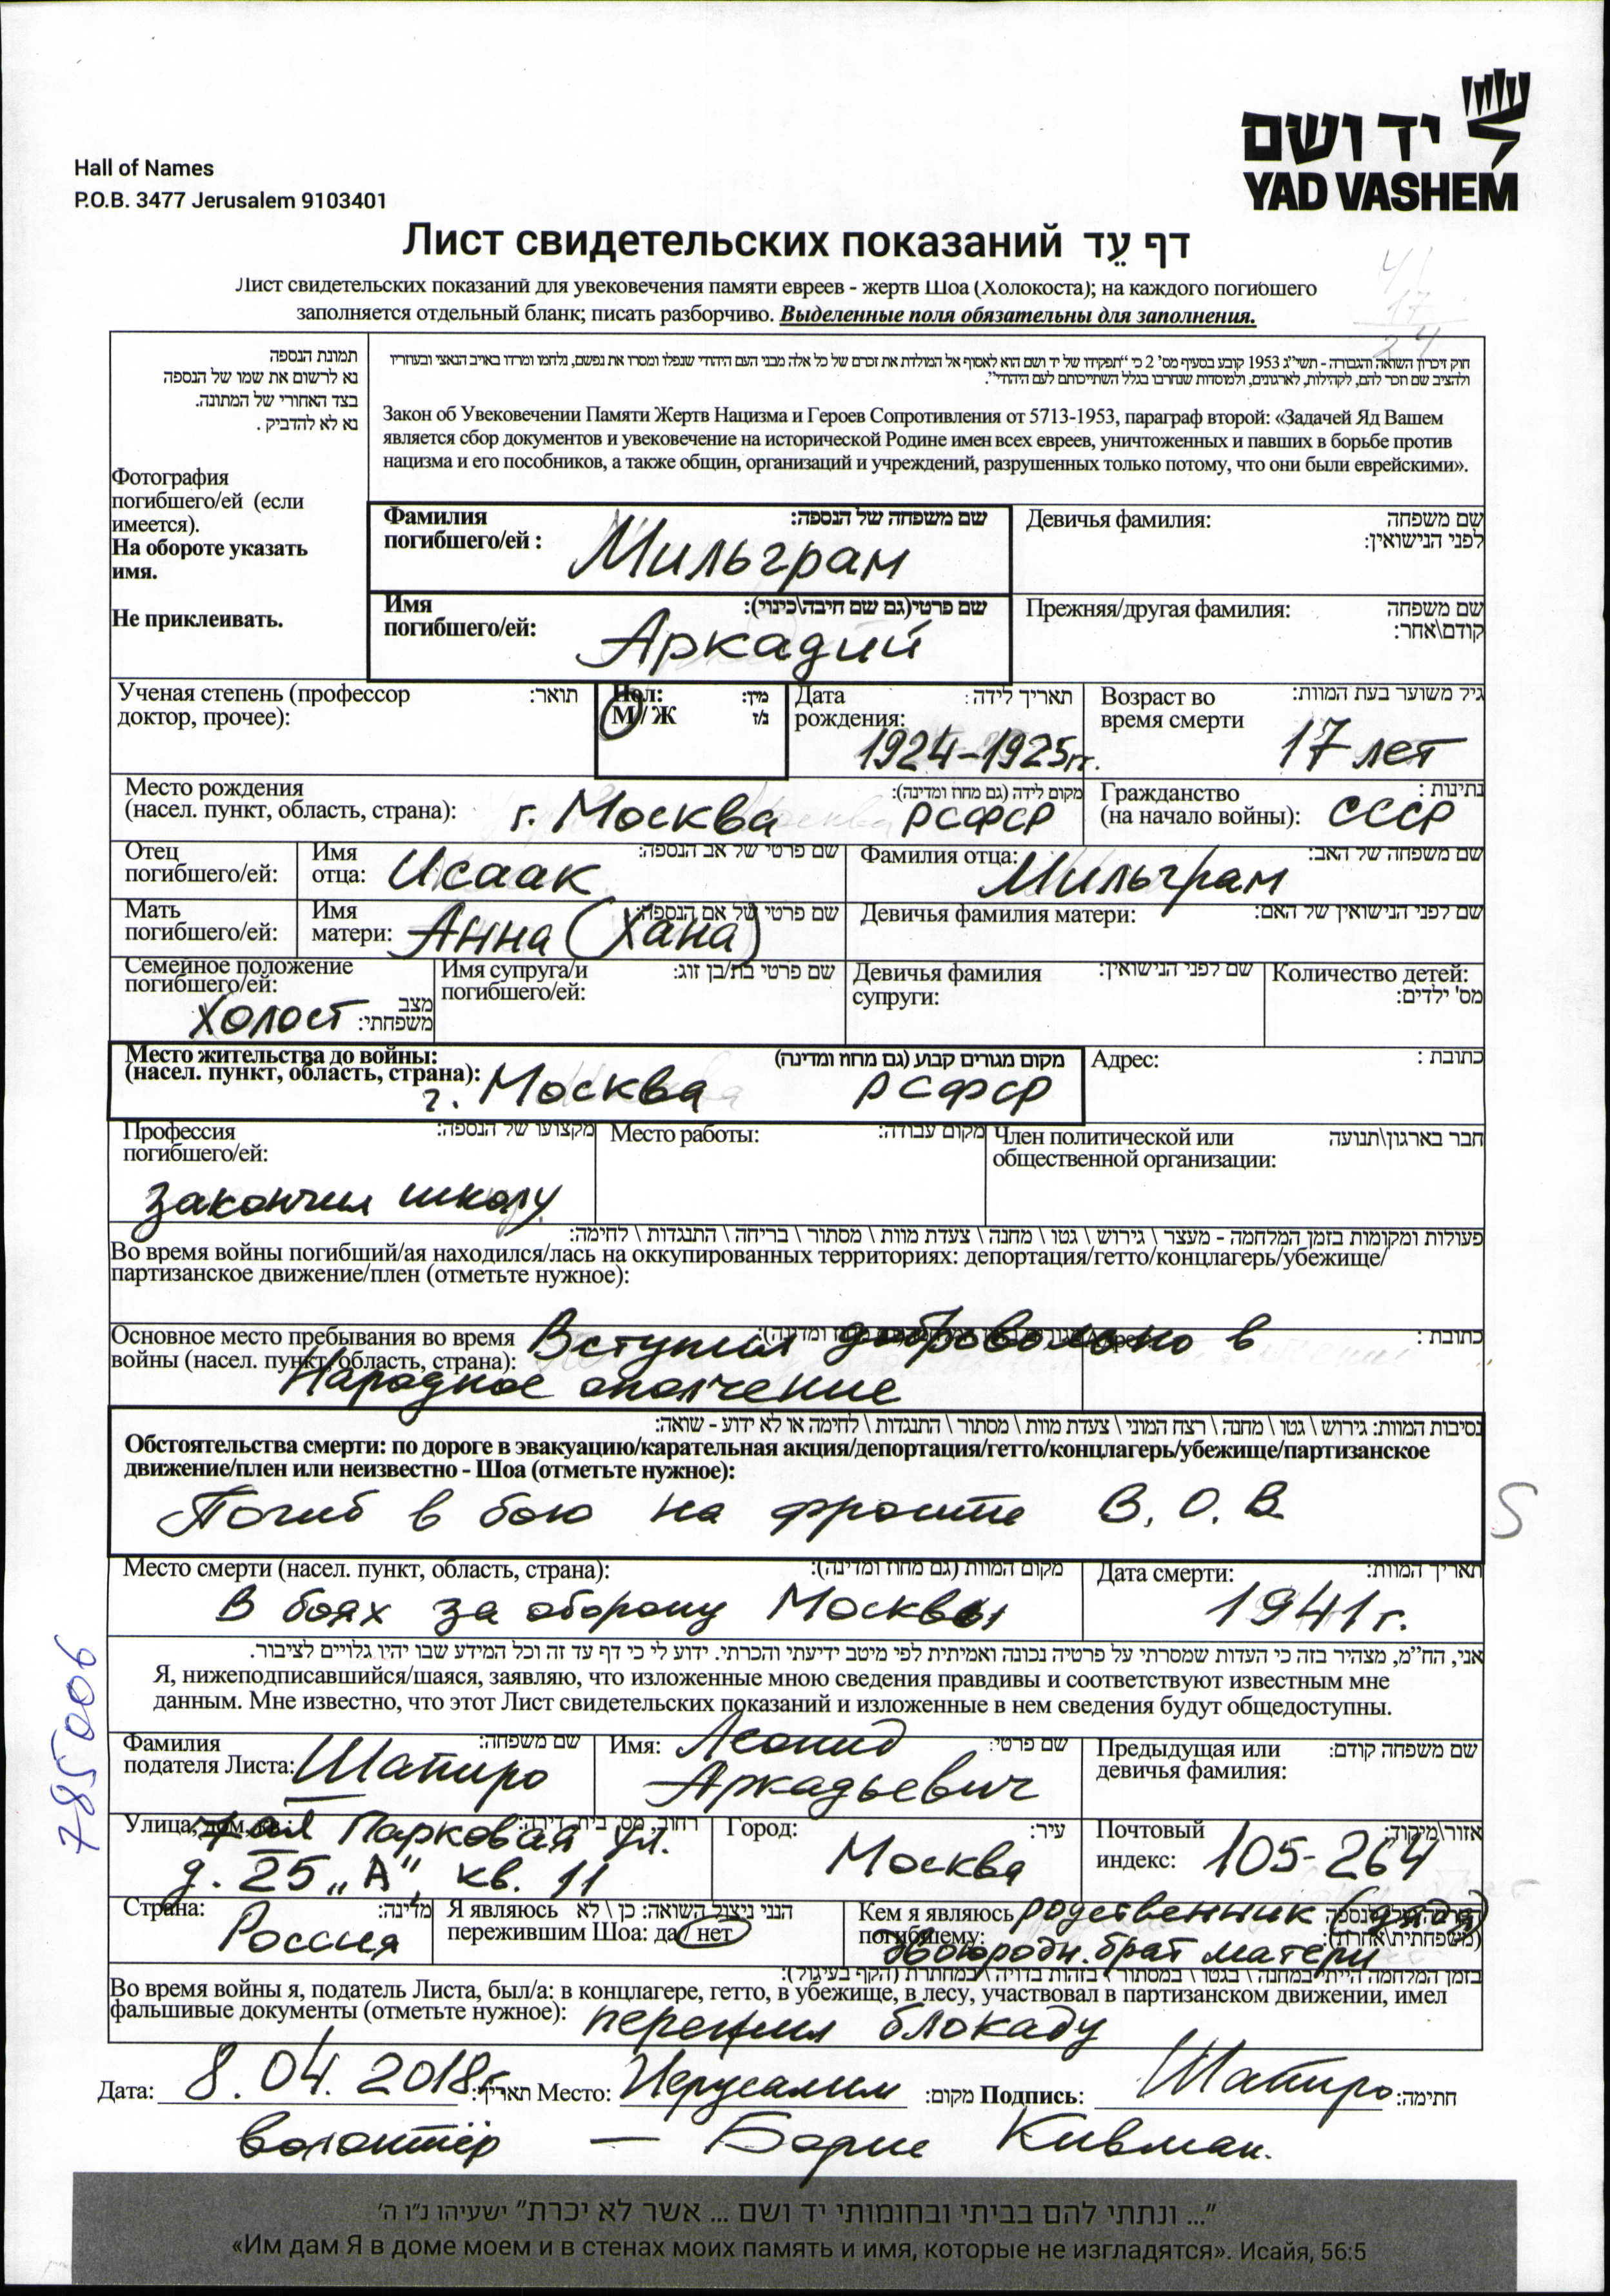 יד ושם
YAD VASHEM
Hall of Names
P.O.B. 3477 Jerusalem 9103401
Лист свидетельских показаний דף עֵד
Лист свидетельских показаний для увековечения памяти евреев - жертв Шоа (Холокоста); на каждого погибшего
заполняется отдельный бланк; писать разборчиво. Выделенные поля обязательны для заполнения.
4/
17
24
תמונת הנספה
נא לרשום את שמו של הנספה
בצד האחורי של המתונה.
נא לא להדביק .
Фотография
погибшего/ей (если
имеется).
На обороте указать
имя.
Не приклеивать.
חוק זיכרון השואה והגבורה - תשי"ג 1953 קובע בסעיף מס' 2 כי "תפקידו של יד ושם הוא לאסוף אל המולדת את זכרם של כל אלה מבני העם היהודי שנפלו ומסרו את נפשם, נלחמו ומרדו באויב הנאצי ובעוזריו
ולהציב שם וזכר להם, לקהילות, לארגונים, ולמוסדות שנחרבו בגלל השתייכותם לעם היהודי".
Закон об Увековечении Памяти Жертв Нацизма и Героев Сопротивления от 5713-1953, параграф второй: «Задачей Яд Вашем
является сбор документов и увековечение на исторической Родине имен всех евреев, уничтоженных и павших в борьбе против
нацизма и его пособников, а также общин, организаций и учреждений, разрушенных только потому, что они были еврейскими».
Фамилия погибшего/ей : שם משפחה של הנספה: Мильграм
Девичья фамилия: שם משפחה לפני הנישואין:
Имя погибшего/ей: שם פרטי(גם שם חיבה\כינוי): Аркадий
Прежняя/другая фамилия: שם משפחה קודם\אחר:
Ученая степень (профессор доктор, прочее): תואר:
Пол: מין: М / Ж ז/נ
Дата рождения: תאריך לידה : 1924-1925гг.
Возраст во время смерти גיל משוער בעת המוות: 17 лет
Место рождения (насел. пункт, область, страна): מקום לידה (גם מחוז ומדינה): г. Москва РСФСР
Гражданство (на начало войны): נתינות : СССР
Отец погибшего/ей: Имя отца: שם פרטי של אב הנספה: Исаак
Фамилия отца: שם משפחה של האב: Мильграм
Мать погибшего/ей: Имя матери: שם פרטי של אם הנספה: Анна (Хана)
Девичья фамилия матери: שם לפני הנישואין של האם:
Семейное положение погибшего/ей: מצב משפחתי: Холост
Имя супруга/и погибшего/ей: שם פרטי בת/בן זוג:
Девичья фамилия супруги: שם לפני הנישואין:
Количество детей: מס' ילדים:
Место жительства до войны: מקום מגורים קבוע (גם מחוז ומדינה)
(насел. пункт, область, страна): г. Москва РСФСР
Адрес: כתובת :
Профессия погибшего/ей: מקצועו של הנספה: Закончил школу
Место работы: מקום עבודה:
Член политической или общественной организации: חבר בארגון\תנועה
פעולות ומקומות בזמן המלחמה - מעצר \ גירוש \ גטו \ מחנה \ צעדת מוות \ מסתור \ בריחה \ התנגדות \ לחימה:
Во время войны погибший/ая находился/лась на оккупированных территориях: депортация/гетто/концлагерь/убежище/
партизанское движение/плен (отметьте нужное):
Основное место пребывания во время Вступил добровольно в כתובת :
войны (насел. пункт, область, страна):
Народное ополчение
נסיבות המוות: גירוש \ גטו \ מחנה \ רצח המוני \ צעדת מוות \ מסתור \ התנגדות \ לחימה או לא ידוע - שואה:
Обстоятельства смерти: по дороге в эвакуацию/карательная акция/депортация/гетто/концлагерь/убежище/партизанское
движение/плен или неизвестно - Шоа (отметьте нужное):
Погиб в бою на фронте В. О. В. S
Место смерти (насел. пункт, область, страна): מקום המוות (גם מחוז ומדינה): Дата смерти: תאריך המוות:
В боях за оборону Москвы 1941г.
אני, הח"מ, מצהיר בזה כי העדות שמסרתי על פרטיה נכונה ואמיתית לפי מיטב ידיעתי והכרתי. ידוע לי כי דף עד זה וכל המידע שבו יהיו גלויים לציבור.
Я, нижеподписавшийся/шаяся, заявляю, что изложенные мною сведения правдивы и соответствуют известным мне
данным. Мне известно, что этот Лист свидетельских показаний и изложенные в нем сведения будут общедоступны.
785006
Фамилия подателя Листа: שם משפחה: Шапиро
Имя: שם פרטי: Леонид Аркадьевич
Предыдущая или девичья фамилия: שם משפחה קודם:
Улица, дом, кв.: רחוב, מס' בית, דירה: 7ая Парковая ул.
д. 25 „А", кв. 11
Город: עיר: Москва
Почтовый индекс: אזור\מיקוד: 105-264
Страна: מדינה: Россия
Я являюсь הנני ניצול השואה: כן \ לא
пережившим Шоа: да / нет
Кем я являюсь погибшему: родственник (дядя)
(משפחתית\אחרת): двоюродн. брат матери
בזמן המלחמה הייתי במחנה \ בגטו \ במסתור \ בזהות בדויה \ במחתרת (הקף בעיגול):
Во время войны я, податель Листа, был/а: в концлагере, гетто, в убежище, в лесу, участвовал в партизанском движении, имел
фальшивые документы (отметьте нужное): пережил блокаду
Дата: 8.04.2018г. תאריך: Место: Иерусалим מקום: Подпись: Шапиро חתימה:
волонтёр — Борис Кивман.
"... ונתתי להם בביתי ובחומותי יד ושם ... אשר לא יכרת" ישעיהו נ"ו ה'
«Им дам Я в доме моем и в стенах моих память и имя, которые не изгладятся». Исайя, 56:5